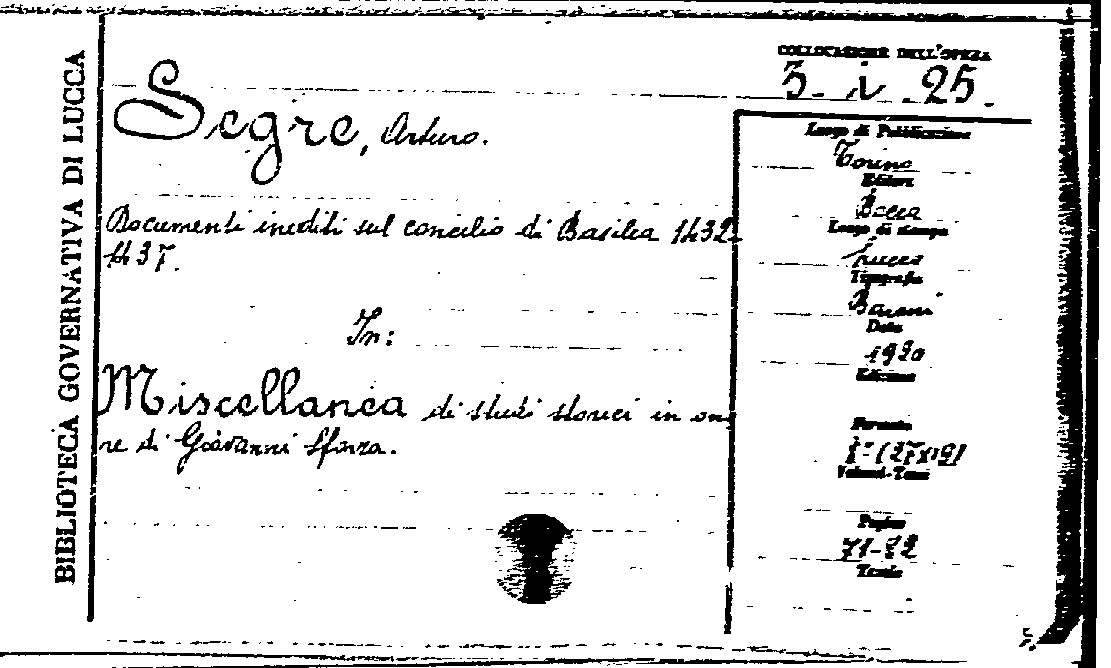 BIBLIOTECA GOVERNATIVA DI LUCCA
COLLOCAZIONE DELL'OPERA
3. i. 25.
Segre, Arturo.
Documenti inediti sul concilio di Basilea 1432-
1437.
In:
Miscellanea di studi storici in ono
re di Giovanni Sforza.
Luogo di Pubblicazione
Torino
Editore
Bocca
Luogo di stampa
Lucca
Tipografia
Baroni
Data
1920
Edizione
Formato
(27x19)
Volumi-Tomi
Pagine
71-82
Tavole